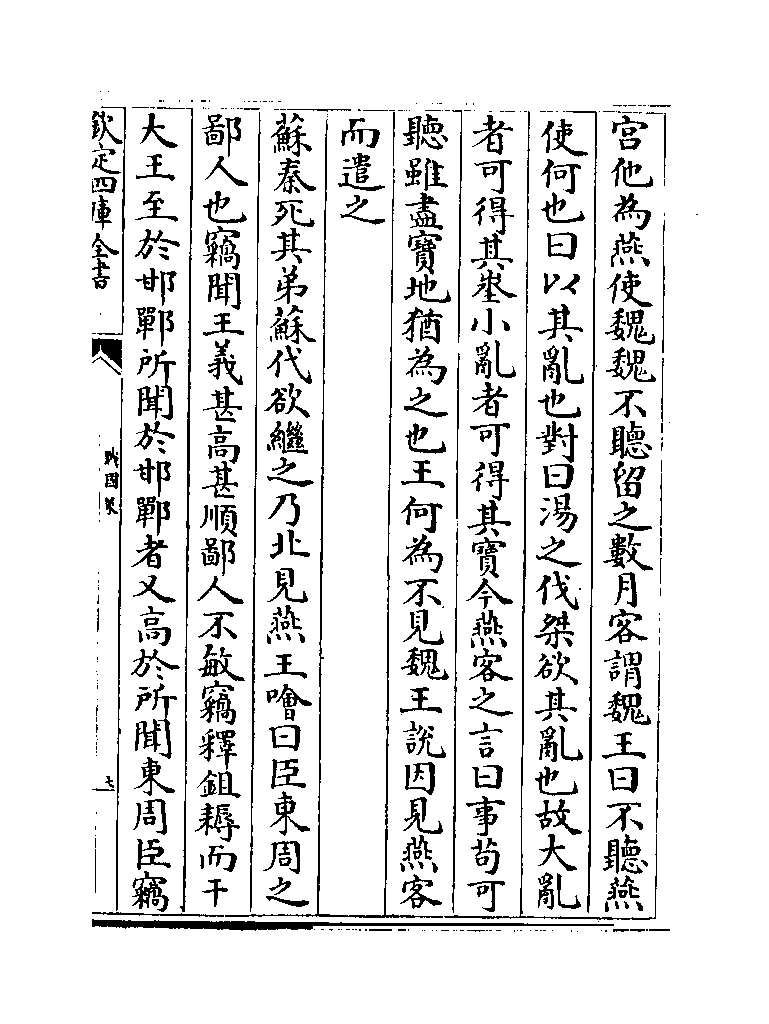 宫他為燕使魏魏不聽留之數月客謂魏王曰不聽燕
使何也曰以其亂也對曰湯之伐桀欲其亂也故大亂
者可得其埊小亂者可得其寶今燕客之言曰事苟可
聽雖盡寶地猶為之也王何為不見魏王說因見燕客
而遣之
蘇秦死其弟蘇代欲繼之乃北見燕王噲曰臣東周之
鄙人也竊聞王義甚高甚順鄙人不敏竊釋鉏耨而干
大王至於邯鄲所聞於邯鄲者又高於所聞東周臣竊
欽定四庫全書
戰國策
七